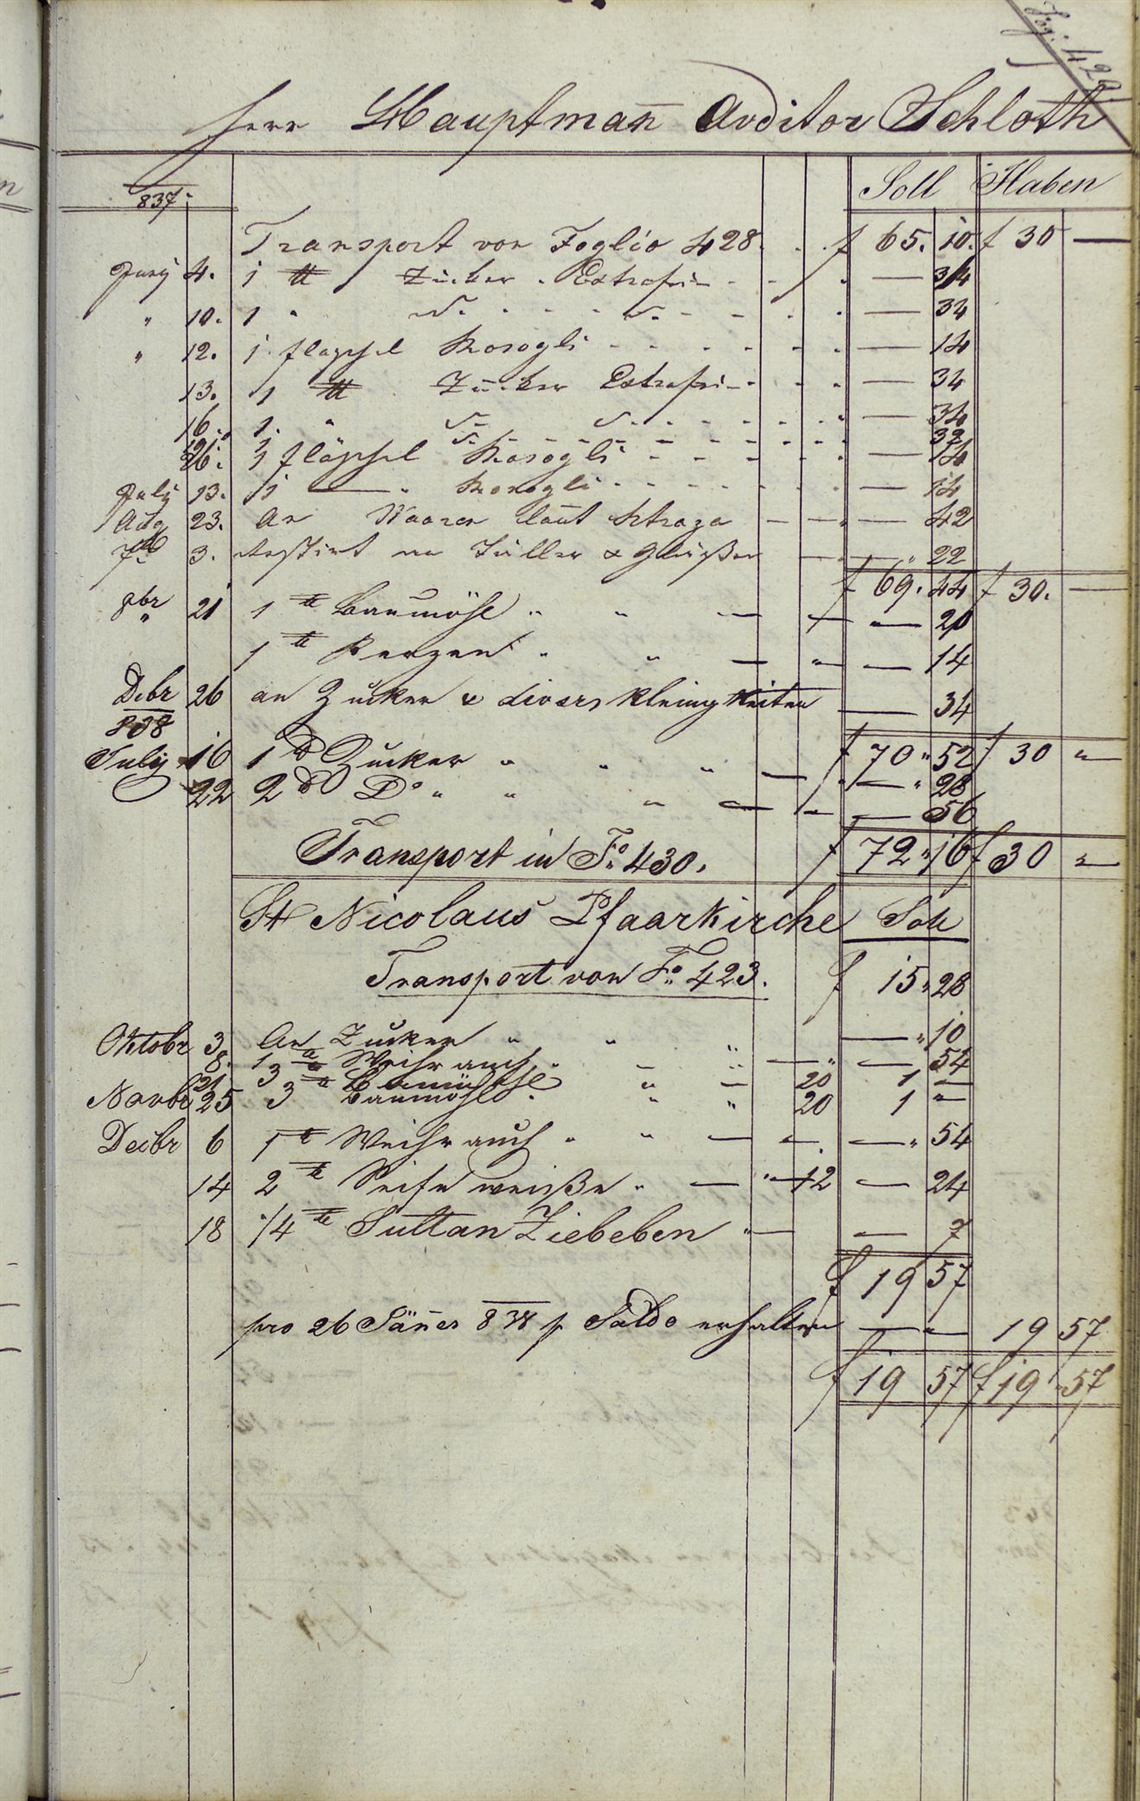 Fog: 429
Herr Hauptman̄ Auditor Schloth
837. Soll Haben
Transport von Foglio 428 . . f 65. 10. f 30 —
Juny 4. 1 ℔ Zucker . Extrafein - - . — 34
" 10. 1 " d. - - - d. - - . . — 34
" 12. 1 flaschel Rosogli - - - - - . — 14
13. 1 ℔ Zucker Extrafein - - . — 34
16. 1. " d. - d. - - - - . — 34
1 d. - - - - - - - 32
26. 1 fläschel Rosogli - - - - . — 14
July 13. 1 — . Rosogli - - - - - . — 14
Aug 23. An Waaren laut Straza — — — 42
7br 3. Restirt an Füller & Gläßer — — " 22
f 69. 44 f 30. —
8br " 21 1 ℔ Baumöhl " " — — — 20
1 ℔ Kerzen " " — " — 14
Debr 26 an Zucker & divers kleinigkeiten — 34
838 f 70 " 52 f 30 "
July 16 1 ℔ Zucker " " " — — " 28
22 2 ℔ Do " " " — — — 56
Transport in Fo 430. f 72 " 16 f 30 "
St Nicolaus Pfaarkirche Soll
Transport von Fo 423. f 15 " 28
Oktobr 3 An Zucker " " " — " 10
8. 1 ℔ Weihrauch " — " — " — 54
21 3 ℔ Baumöhl " " — 20 1 —
Novbr 25 3 " Baumöhl " " " 20 1 "
Decbr 6 1 ℔ Weihrauch " " — — . — " 54
14 2 ℔ Seife weiße " — " — 12 — 24
18 1/4 ℔ Sultan Ziebeben " — — 7
f 19 57
pro 26 Jän̄er 838 p Saldo erhalten — — 19 57
f 19 57 f 19 " 57